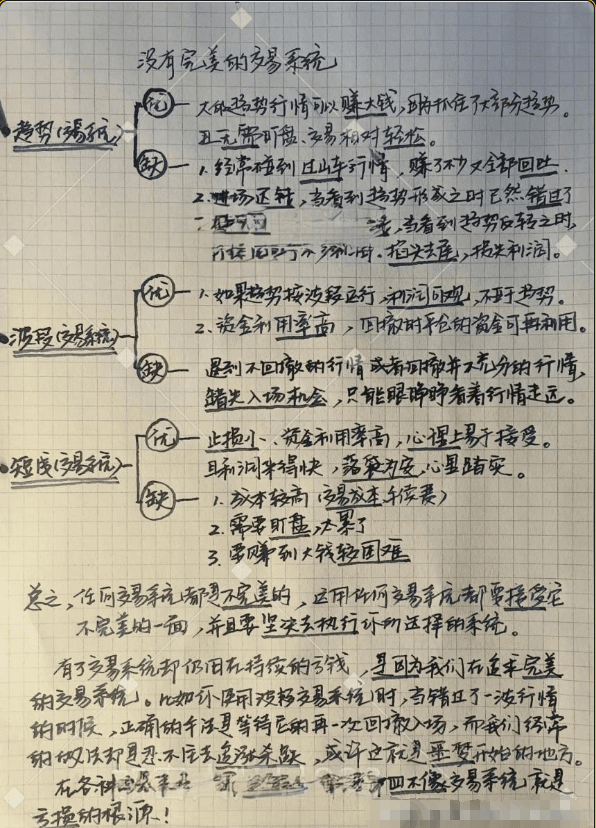 没有完美的交易系统
趋势(交易系统)
优
大的趋势行情可以赚大钱,因为抓住了大部分趋势。
且无需盯盘、交易相对轻松。
缺
1.经常碰到过山车行情,赚了不少又全部回吐.
2.进场迟钝,当看到趋势形成之时已然错过了
当看到趋势反转之时,
损失利润。
波段(交易系统)
优
1.如果趋势按波段运行,利润可观,不亚于趋势。
2.资金利用率高,回撤的平仓的资金可再利用。
缺
遇到不回撤的行情或者回撤并不充分的行情,
错失入场机会,只能眼睁睁看着行情走远。
短线(交易系统)
优
止损小、资金利用率高,心理上易于接受。
且利润来得快,落袋为安,心里踏实。
缺
1.成本较高(交易成本手续费)
2.需要盯盘,太累了
3.要赚到大钱较困难
总之,任何交易系统都是不完美的,运用任何交易系统都要接受它
不完美的一面,并且要坚决去执行你所选择的系统。
有了交易系统却仍旧在持续的亏钱,是因为我们在追求完美
的交易系统。比如你使用波段交易系统时,当错过了一波行情
的时候,正确的手法是等待它的再一次回撤入场,而我们经常
的做法却是忍不住去追涨杀跌,或许这就是噩梦开始的地方。
在各种 四不像交易系统就是
亏损的根源!